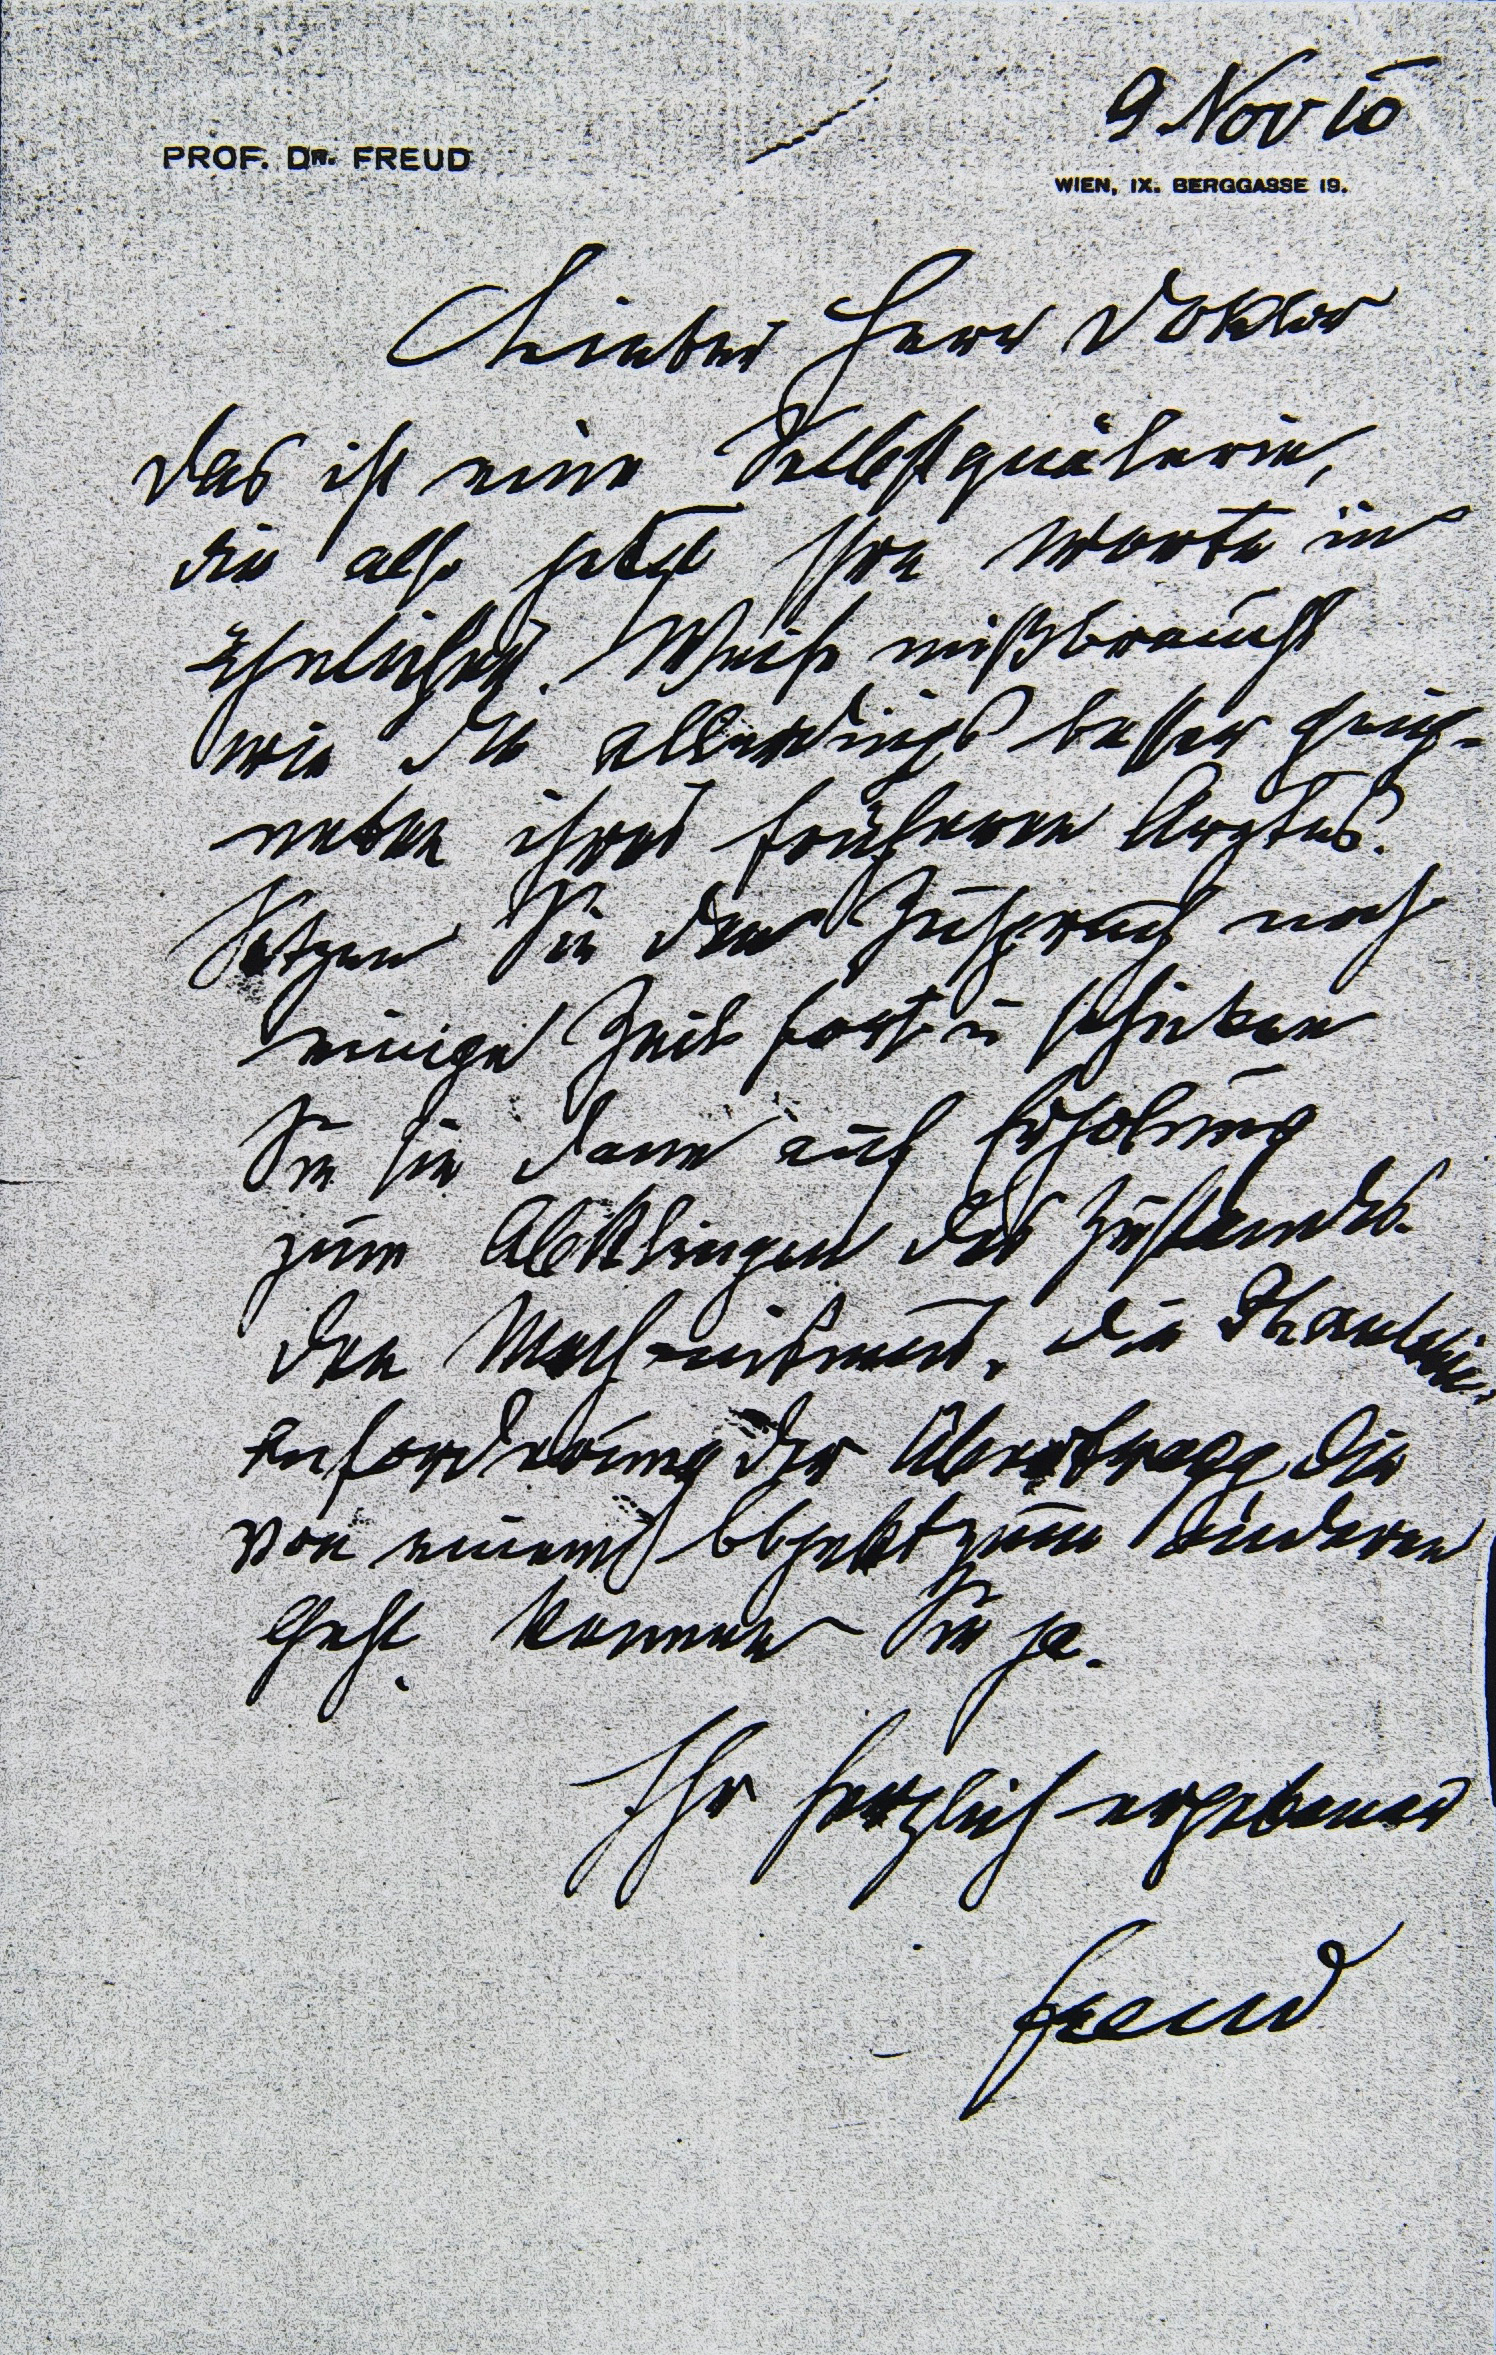 9 Nov 10
PROF. DR. FREUD
WIEN, IX. BERGGASSE 19.
Lieber Herr Doktor
Das ist eine Selbstquälerin,
die also jetzt Ihre Worte in
ähnlicher Weise mißbraucht
wie die allerdings besser geeig-
neten ihres früheren Arztes.
Setzen Sie den Zuspruch noch
einige Zeit fort u schicken
Sie sie dann auf Erholung
zum Abklingen des Zustandes.
Den Mechanismus, die
der die
von einem Objekt zum anderen
geht, kennen Sie ja.
Ihr herzlich ergebener
Freud